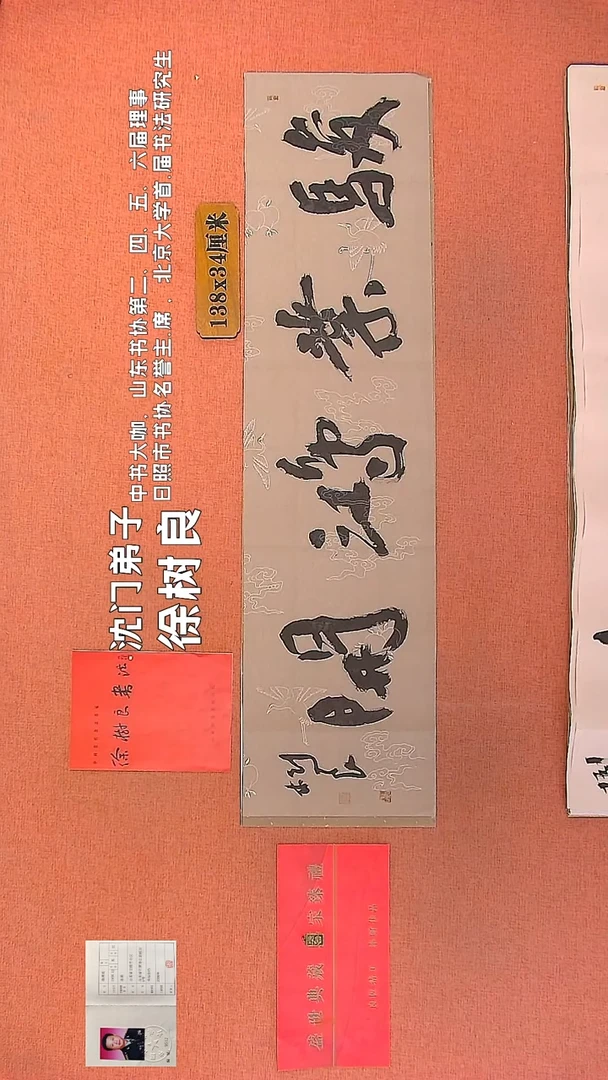 沈门弟子
徐树良
中书大咖、山东书协第二、四、五、六届理事
日照市书协名誉主席、北京大学首届书法研究生
138x34厘米
駿業鴻開
树良
徐树良书法
盛世典藏